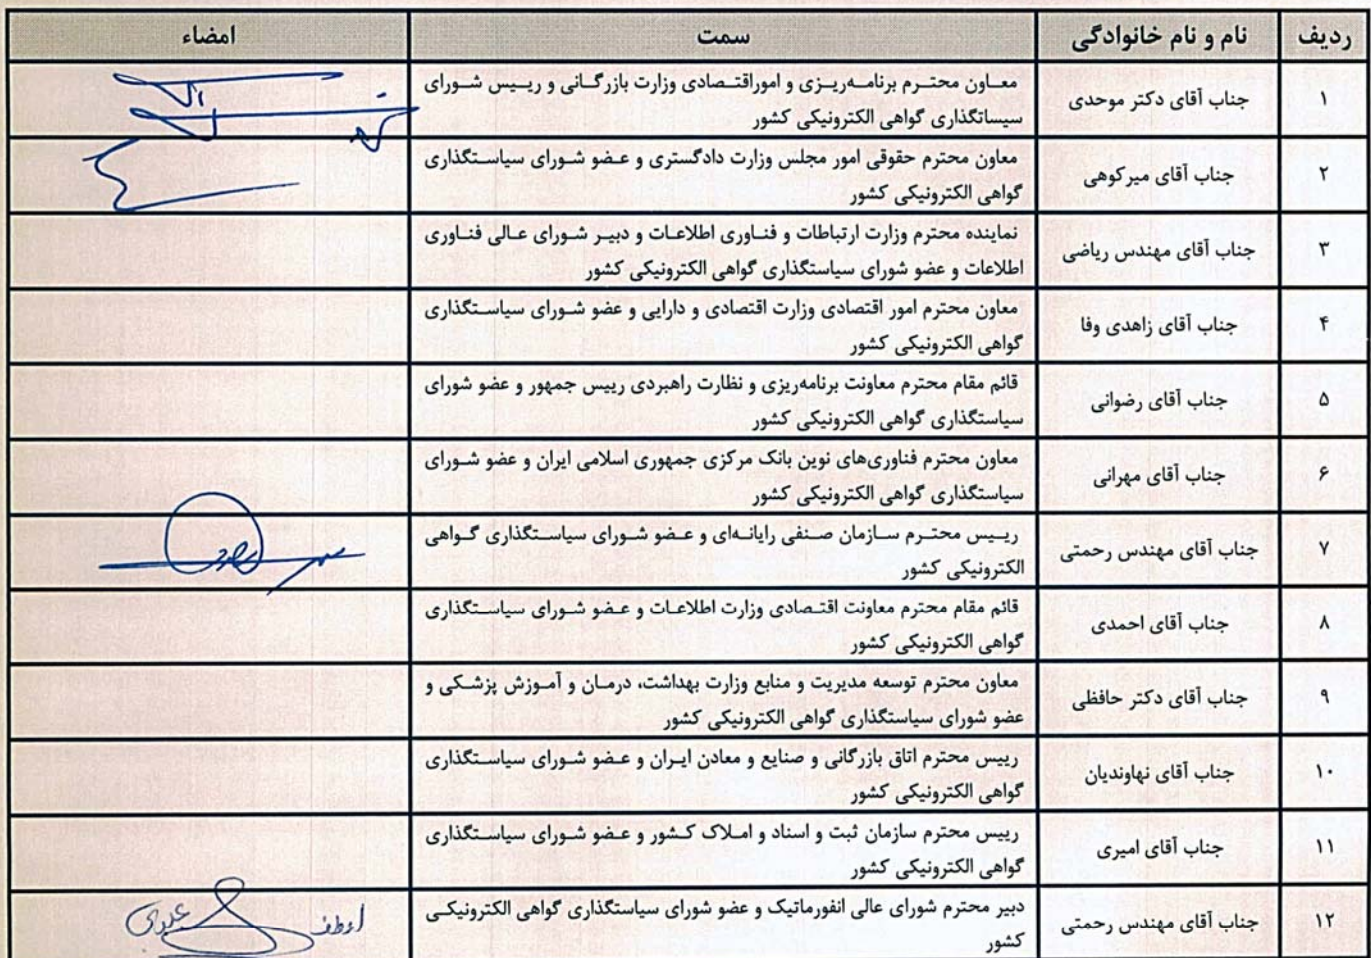 ردیف نام و نام خانوادگی سمت امضاء
۱ جناب آقای دکتر موحدی معـاون محتـرم برنامـه‌ریـزی و اموراقتـصادی وزارت بازرگـانی و ریـیس شـورای
سیساتگذاری گواهی الکترونیکی کشور
۲ جناب آقای میرکوهی معاون محترم حقوقی امور مجلس وزارت دادگستری و عـضو شـورای سیاسـتگذاری
گواهی الکترونیکی کشور
۳ جناب آقای مهندس ریاضی نماینده محترم وزارت ارتباطات و فنـاوری اطلاعـات و دبیـر شـورای عـالی فنـاوری
اطلاعات و عضو شورای سیاستگذاری گواهی الکترونیکی کشور
۴ جناب آقای زاهدی وفا معاون محترم امور اقتصادی وزارت اقتصادی و دارایی و عضو شـورای سیاسـتگذاری
گواهی الکترونیکی کشور
۵ جناب آقای رضوانی قائم مقام محترم معاونت برنامه‌ریزی و نظارت راهبردی رییس جمهور و عضو شورای
سیاستگذاری گواهی الکترونیکی کشور
۶ جناب آقای مهرانی معاون محترم فناوری‌های نوین بانک مرکزی جمهوری اسلامی ایران و عضو شـورای
سیاستگذاری گواهی الکترونیکی کشور
۷ جناب آقای مهندس رحمتی ریـیس محتـرم سـازمان صـنفی رایانـه‌ای و عـضو شـورای سیاسـتگذاری گـواهی
الکترونیکی کشور
۸ جناب آقای احمدی قائم مقام محترم معاونت اقتـصادی وزارت اطلاعـات و عـضو شـورای سیاسـتگذاری
گواهی الکترونیکی کشور
۹ جناب آقای دکتر حافظی معاون محترم توسعه مدیریت و منابع وزارت بهداشت، درمـان و آمـوزش پزشـکی و
عضو شورای سیاستگذاری گواهی الکترونیکی کشور
۱۰ جناب آقای نهاوندیان رییس محترم اتاق بازرگانی و صنایع و معادن ایـران و عـضو شـورای سیاسـتگذاری
گواهی الکترونیکی کشور
۱۱ جناب آقای امیری رییس محترم سازمان ثبت و اسناد و امـلاک کـشور و عـضو شـورای سیاسـتگذاری
گواهی الکترونیکی کشور
۱۲ جناب آقای مهندس رحمتی دبیر محترم شورای عالی انفورماتیک و عضو شورای سیاستگذاری گواهی الکترونیکـی
کشور